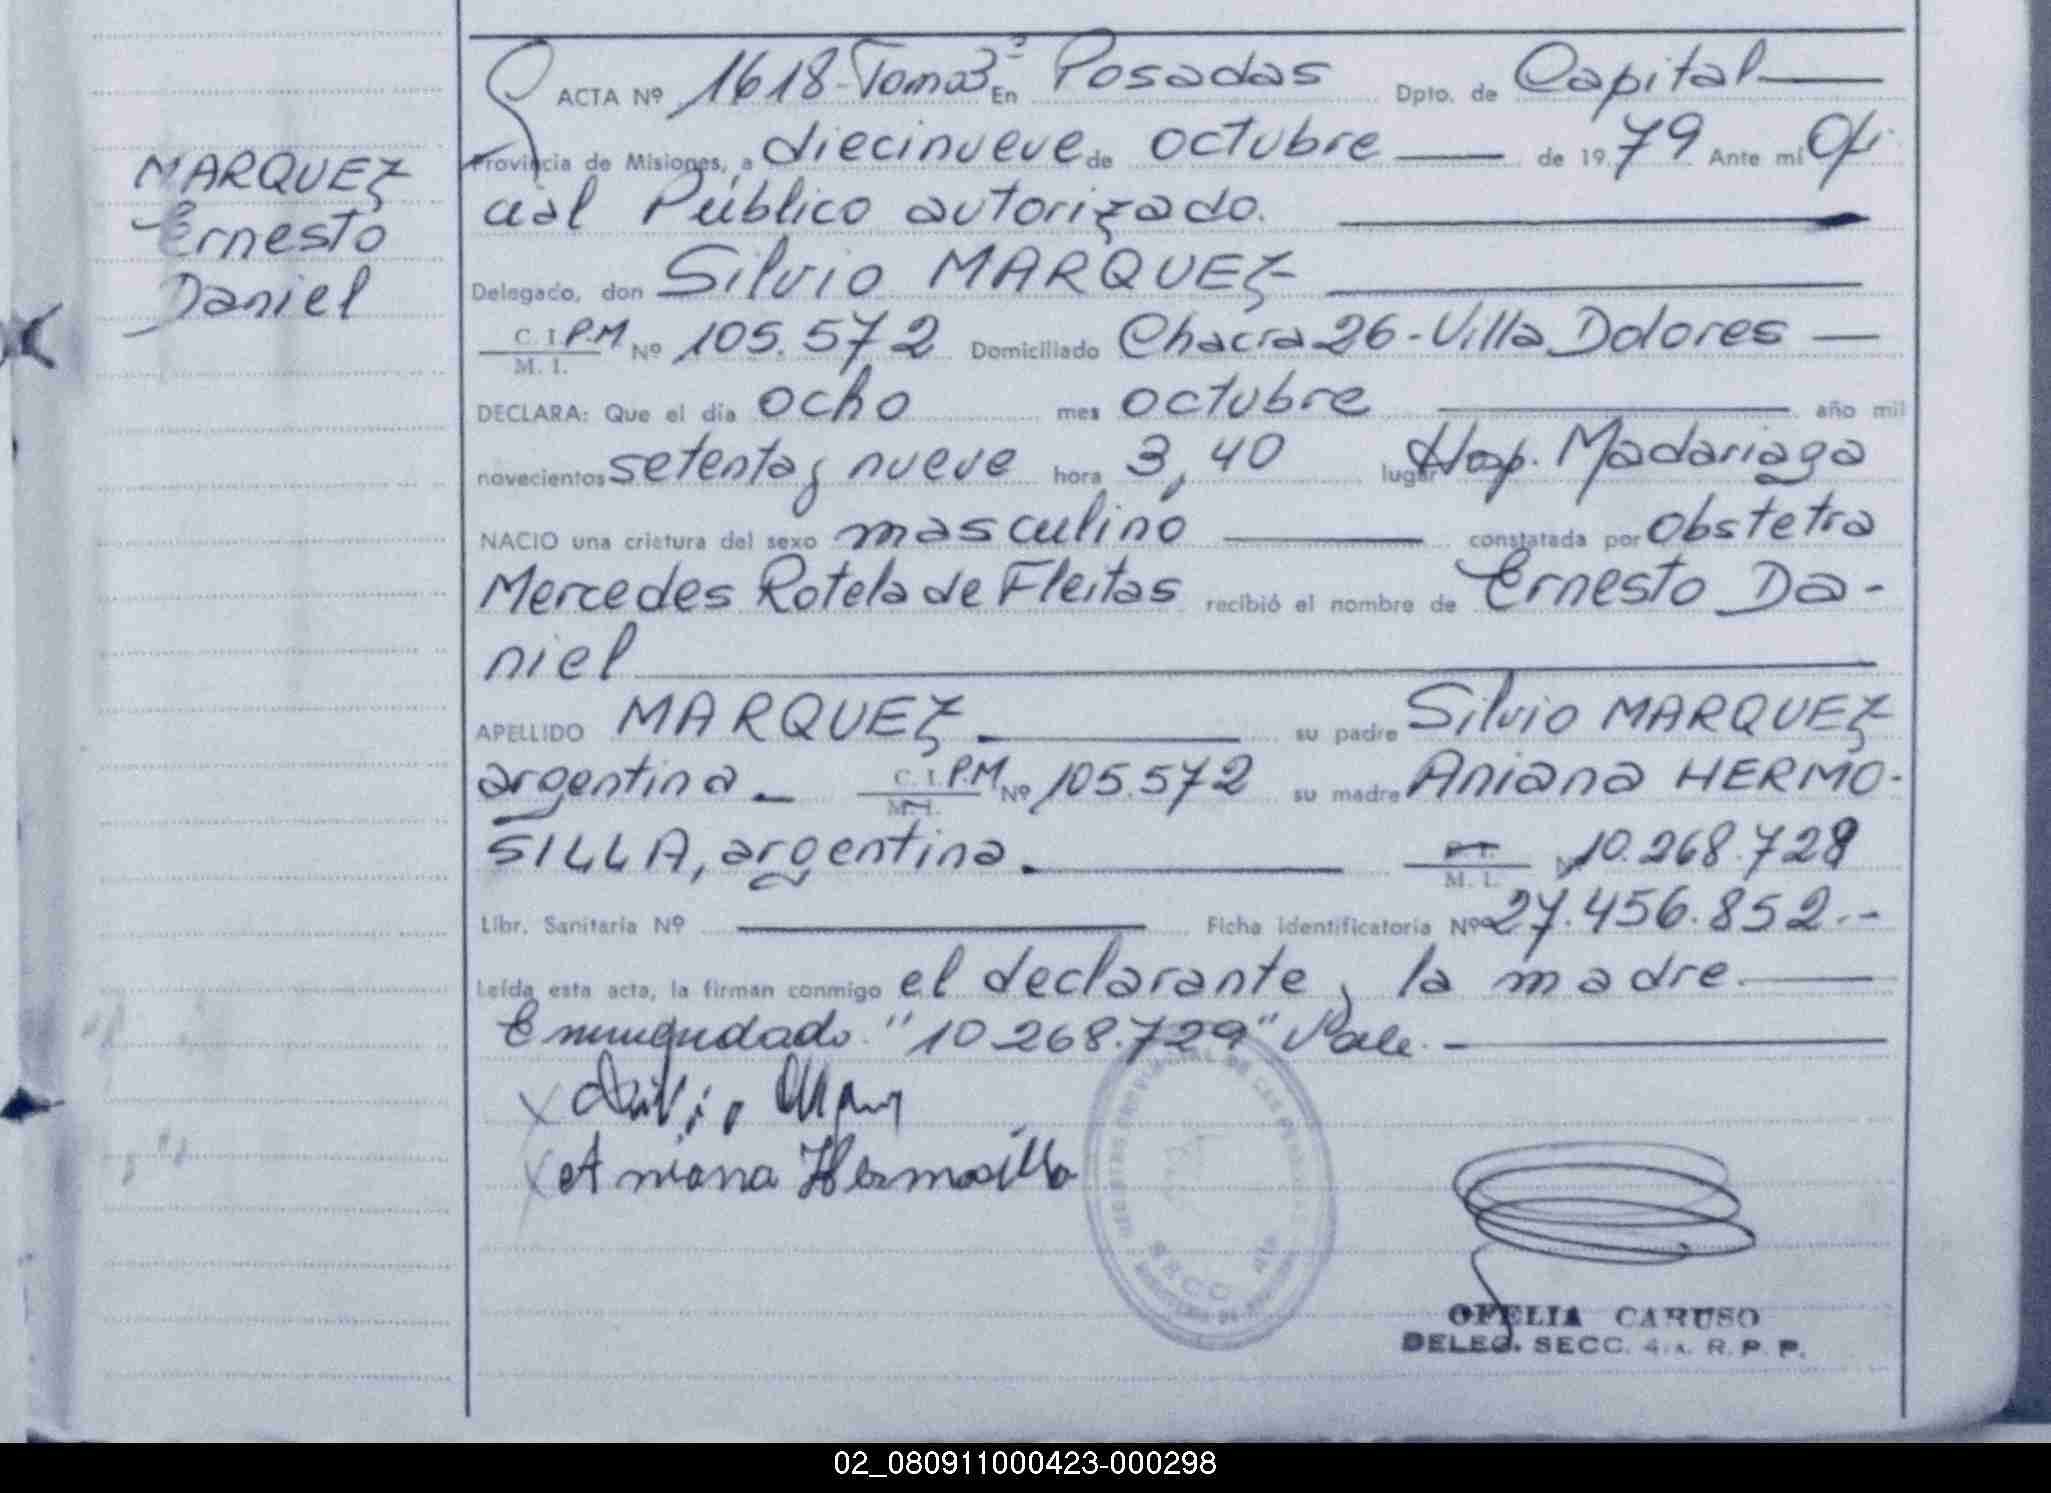 MARQUEZ
Ernesto
Daniel
ACTA Nº 1618-Tomo3º En Posadas Dpto. de Capital
Provincia de Misiones, a diecinueve de octubre de 1979 Ante mí Ofi
cial Público autorizado.
Delegado, don Silvio MARQUEZ
C. I. P.M Nº 105.572 Domiciliado Chacra 26-Villa Dolores
M. I.
DECLARA: Que el día ocho mes octubre año mil
novecientos setenta y nueve hora 3,40 lugar Hosp. Madariaga
NACIO una criatura del sexo masculino constatada por Obstetra
Mercedes Rotela de Fleitas recibió el nombre de Ernesto Da-
niel
APELLIDO MARQUEZ su padre Silvio MARQUEZ
argentina C. I. P.M Nº 105.572 su madre Aniana HERMO-
M. I.
SILLA, argentina. C. I. Nº 10.268.729
M. I.
Libr. Sanitaria Nº Ficha identificatoria Nº 27.456.852.-
Leída esta acta, la firman conmigo el declarante y la madre
Enmendado "10.268.729" Vale.
x Silvio
x Aniana Hermosilla
SECC 4ta
OFELIA CARUSO
DELEG. SECC. 4.A. R. P. P.
02_080911000423-000298